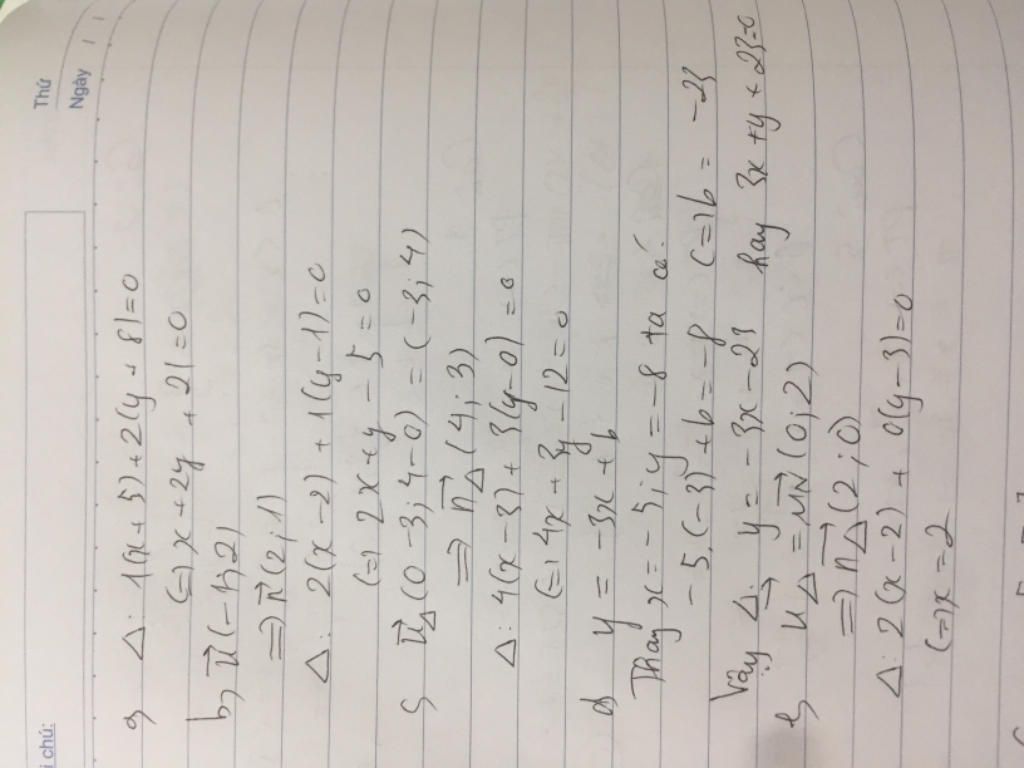 Thứ
Ngày
i chú:
a, Δ: 1(x+5)+2(y+8)=0
(=) x+2y+21=0
b, u⃗(-1; 2)
=> n⃗(2; 1)
Δ: 2(x-2)+1(y-1)=0
(=) 2x+y-5=0
c, u⃗Δ(0-3; 4-0)=(-3; 4)
=> n⃗Δ(4; 3)
Δ: 4(x-3)+3(y-0)=0
(=) 4x+3y-12=0
d, y=-3x+b
Thay x=-5; y=-8 ta có:
-5.(-3)+b=-8 (=) b=-23
Vậy Δ: y=-3x-23 hay 3x+y+23=0
e, u⃗Δ=MN⃗(0; 2)
=> n⃗Δ(2; 0)
Δ: 2(x-2)+0(y-3)=0
(=) x=2